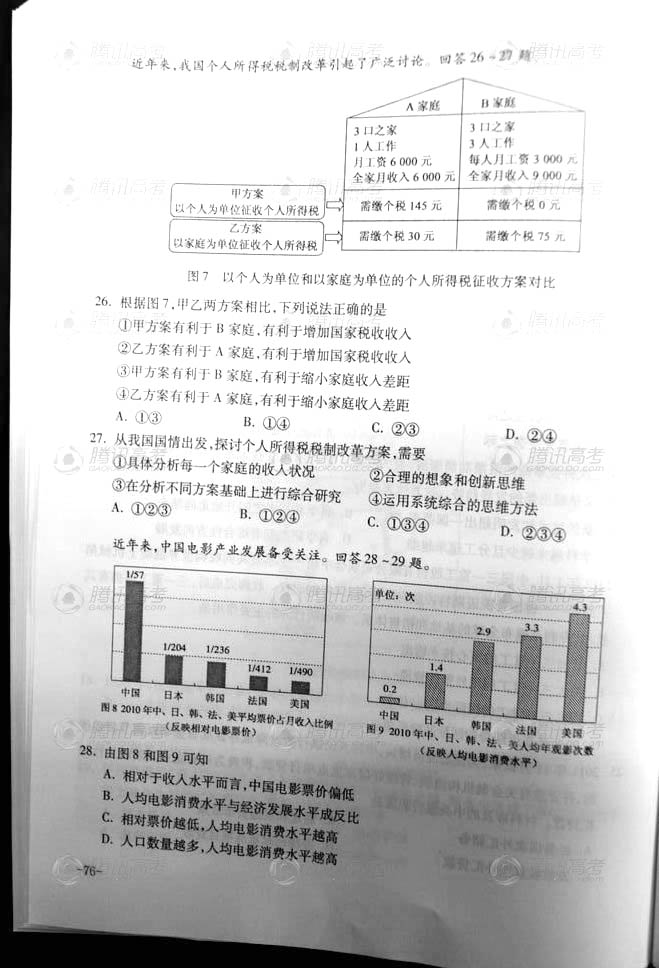 近年来,我国个人所得税税制改革引起了广泛讨论。回答26~27题
A家庭
B家庭
3口之家
1人工作
月工资6 000元
全家月收入6 000元
3口之家
3人工作
每人月工资3 000元
全家月收入9 000元
甲方案
以个人为单位征收个人所得税
需缴个税145元
需缴个税0元
乙方案
以家庭为单位征收个人所得税
需缴个税30元
需缴个税75元
图7 以个人为单位和以家庭为单位的个人所得税征收方案对比
26. 根据图7,甲乙两方案相比,下列说法正确的是
①甲方案有利于B家庭,有利于增加国家税收收入
②乙方案有利于A家庭,有利于增加国家税收收入
③甲方案有利于B家庭,有利于缩小家庭收入差距
④乙方案有利于A家庭,有利于缩小家庭收入差距
A. ①③ B. ①④ C. ②③ D. ②④
27. 从我国国情出发,探讨个人所得税税制改革方案,需要
①具体分析每一个家庭的收入状况 ②合理的想象和创新思维
③在分析不同方案基础上进行综合研究 ④运用系统综合的思维方法
A. ①②③ B. ①②④ C. ①③④ D. ②③④
近年来,中国电影产业发展备受关注。回答28~29题。
1/57
1/204
1/236
1/412
1/490
中国 日本 韩国 法国 美国
图8 2010年中、日、韩、法、美平均票价占月收入比例
(反映相对电影票价)
单位:次
0.2
1.4
2.9
3.3
4.3
中国 日本 韩国 法国 美国
图9 2010年中、日、韩、法、美人均年观影次数
(反映人均电影消费水平)
28. 由图8和图9可知
A. 相对于收入水平而言,中国电影票价偏低
B. 人均电影消费水平与经济发展水平成反比
C. 相对票价越低,人均电影消费水平越高
D. 人口数量越多,人均电影消费水平越高
-76-
腾讯高考
GAOKAO.QQ.COM